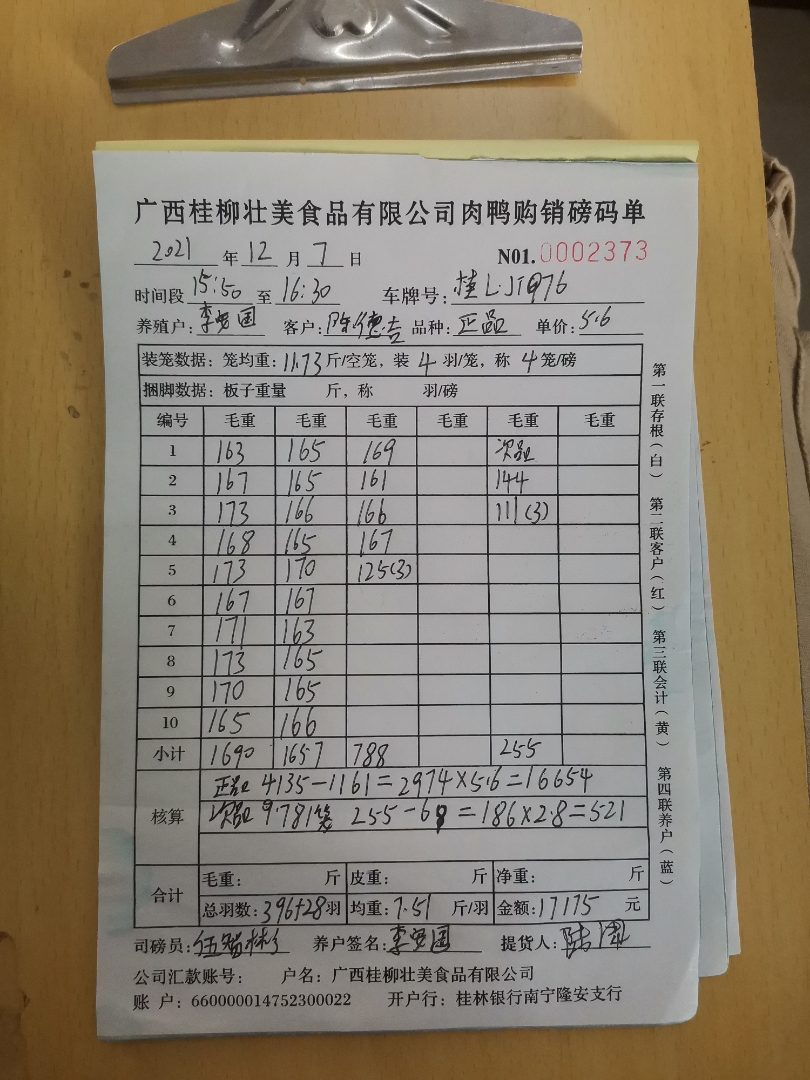 广西桂柳壮美食品有限公司肉鸭购销磅码单
2021 年 12 月 7 日 N01.0002373
时间段 15:50 至 16:30 车牌号: 桂L·
养殖户: 客户: 陈德吉 品种: 正品 单价: 5.6
装笼数据: 笼均重: 11.73 斤/空笼, 装 4 羽/笼, 称 4 笼/磅
捆脚数据: 板子重量 斤, 称 羽/磅
编号 毛重 毛重 毛重 毛重 毛重 毛重
1 163 165 169 次品
2 167 165 161 144
3 173 166 166 111(3)
4 168 165 167
5 173 170 125(3)
6 167 167
7 171 163
8 173 165
9 170 165
10 165 166
小计 1690 1657 788 255
核算
正品 4135-1161=2974×5.6=16654
次品 9.781笼 255-68=186×2.8=521
合计
毛重: 斤 皮重: 斤 净重: 斤
总羽数: 396+28 羽 均重: 7.51 斤/羽 金额: 17175 元
司磅员: 养户签名: 提货人:
公司汇款账号: 户名: 广西桂柳壮美食品有限公司
账 户: 660000014752300022 开户行: 桂林银行南宁隆安支行
第一联存根(白) 第二联客户(红) 第三联会计(黄) 第四联养户(蓝)